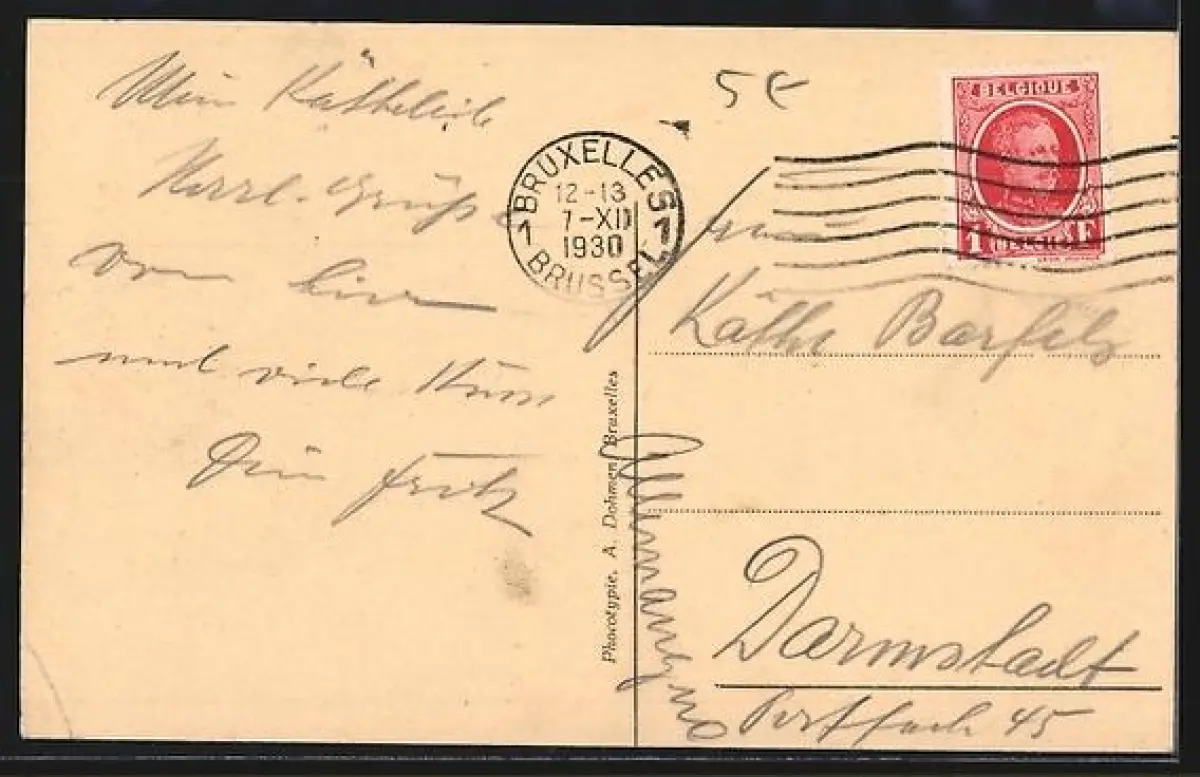 Mein Kätherle
Herzl. Grüße
von hier
und viele Küsse
Dein Fritz
5€
BRUXELLES
12-13
7-XII
1930
1 1
BRUSSEL
BELGIQUE
1 F
BELGIË
Frau
Käthe Bartels
Darmstadt
Postfach 45
Allemagne
Phototypie, A. Dohmen, Bruxelles